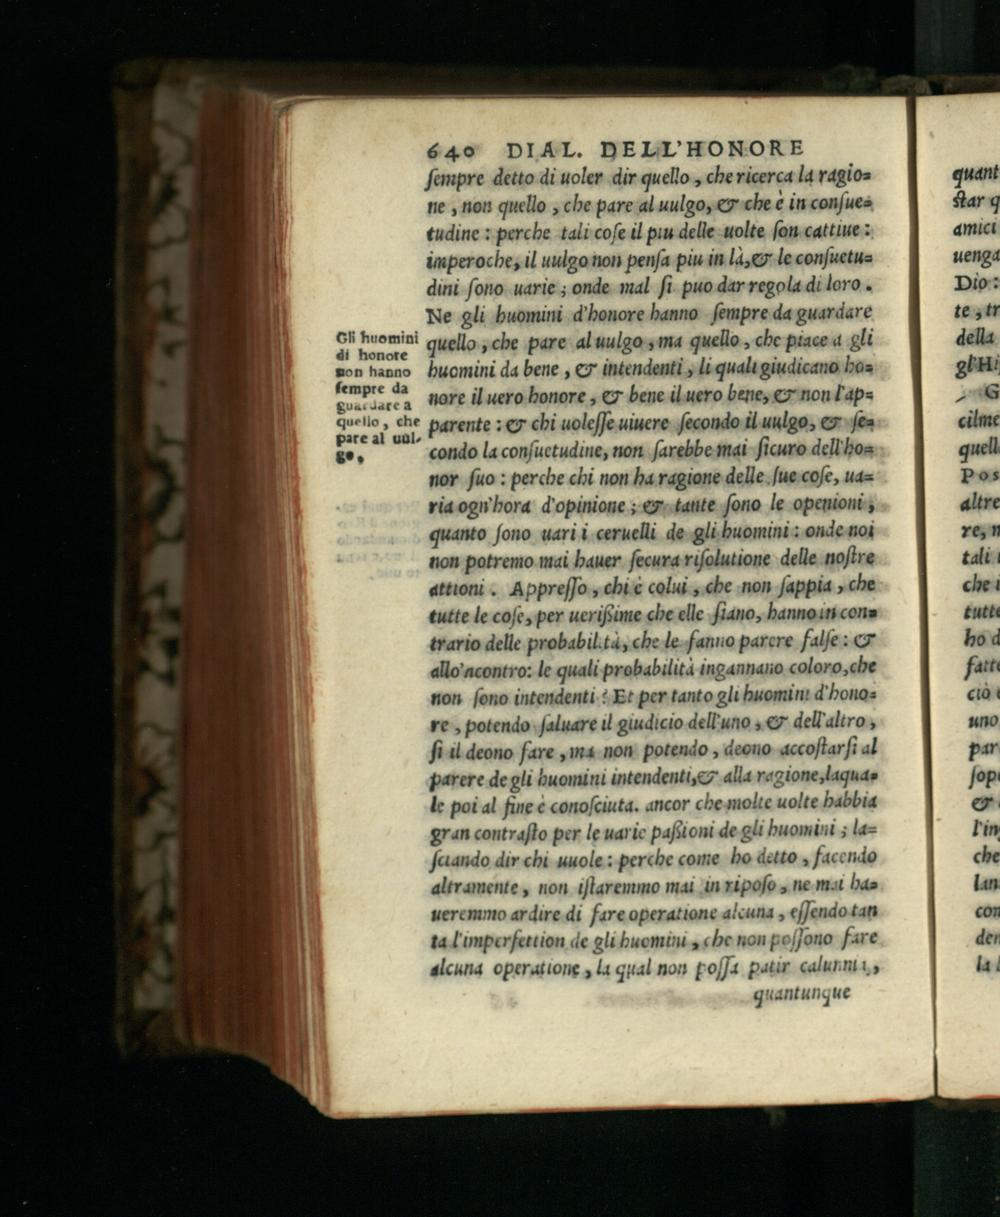 640 DIAL. DELL'HONORE
ſempre detto di uoler dir quello, che ricerca la ragio=
ne, non quello, che pare al uulgo, & che è in conſue=
tudine: perche tali coſe il piu delle uolte ſon cattiue:
imperoche, il uulgo non penſa piu in là, & le conſuetu=
dini ſono uarie; onde mal ſi puo dar regola di loro.
Ne gli huomini d'honore hanno ſempre da guardare
quello, che pare al uulgo, ma quello, che piace a gli
huomini da bene, & intendenti, li quali giudicano ho=
nore il uero honore, & bene il uero bene, & non l'ap=
parente: & chi uoleſſe uiuere ſecondo il uulgo, & ſe=
condo la conſuetudine, non ſarebbe mai ſicuro dell'ho=
nor ſuo: perche chi non ha ragione delle ſue coſe, ua=
ria ogn'hora d'opinione; & tante ſono le openioni,
quanto ſono uari i ceruelli de gli huomini: onde noi
non potremo mai hauer ſecura riſolutione delle noſtre
attioni. Appreſſo, chi è colui, che non ſappia, che
tutte le coſe, per ueriſsime che elle ſiano, hanno in con=
trario delle probabilità, che le fanno parere falſe: &
allo'ncontro: le quali probabilità ingannano coloro, che
non ſono intendenti? Et per tanto gli huomini d'hono=
re, potendo ſaluare il giudicio dell'uno, & dell'altro,
ſi il deono fare, ma non potendo, deono accoſtarſi al
parere de gli huomini intendenti, & alla ragione, laqua=
le poi al fine è conoſciuta. ancor che molte uolte habbia
gran contraſto per le uarie paſsioni de gli huomini; la=
ſciando dir chi uuole: perche come ho detto, facendo
altramente, non iſtaremmo mai in ripoſo, ne mai ha=
ueremmo ardire di fare operatione alcuna, eſſendo tan
ta l'imperfettion de gli huomini, che non poſſono fare
alcuna operatione, la qual non poſſa patir calunnia,
quantunque
Gli huomini
di honore
non hanno
ſempre da
guardare a
quello, che
pare al uul-
go.
quant
ſtar q
amici
uenga
Dio:
te, tr
della
gl'Hi
G
cilme
quell
Pos
altre
re, n
tali
che
tutte
ho d
fatt
ciò
uno
par
ſop
&
l'in
che
lan
con
den
la